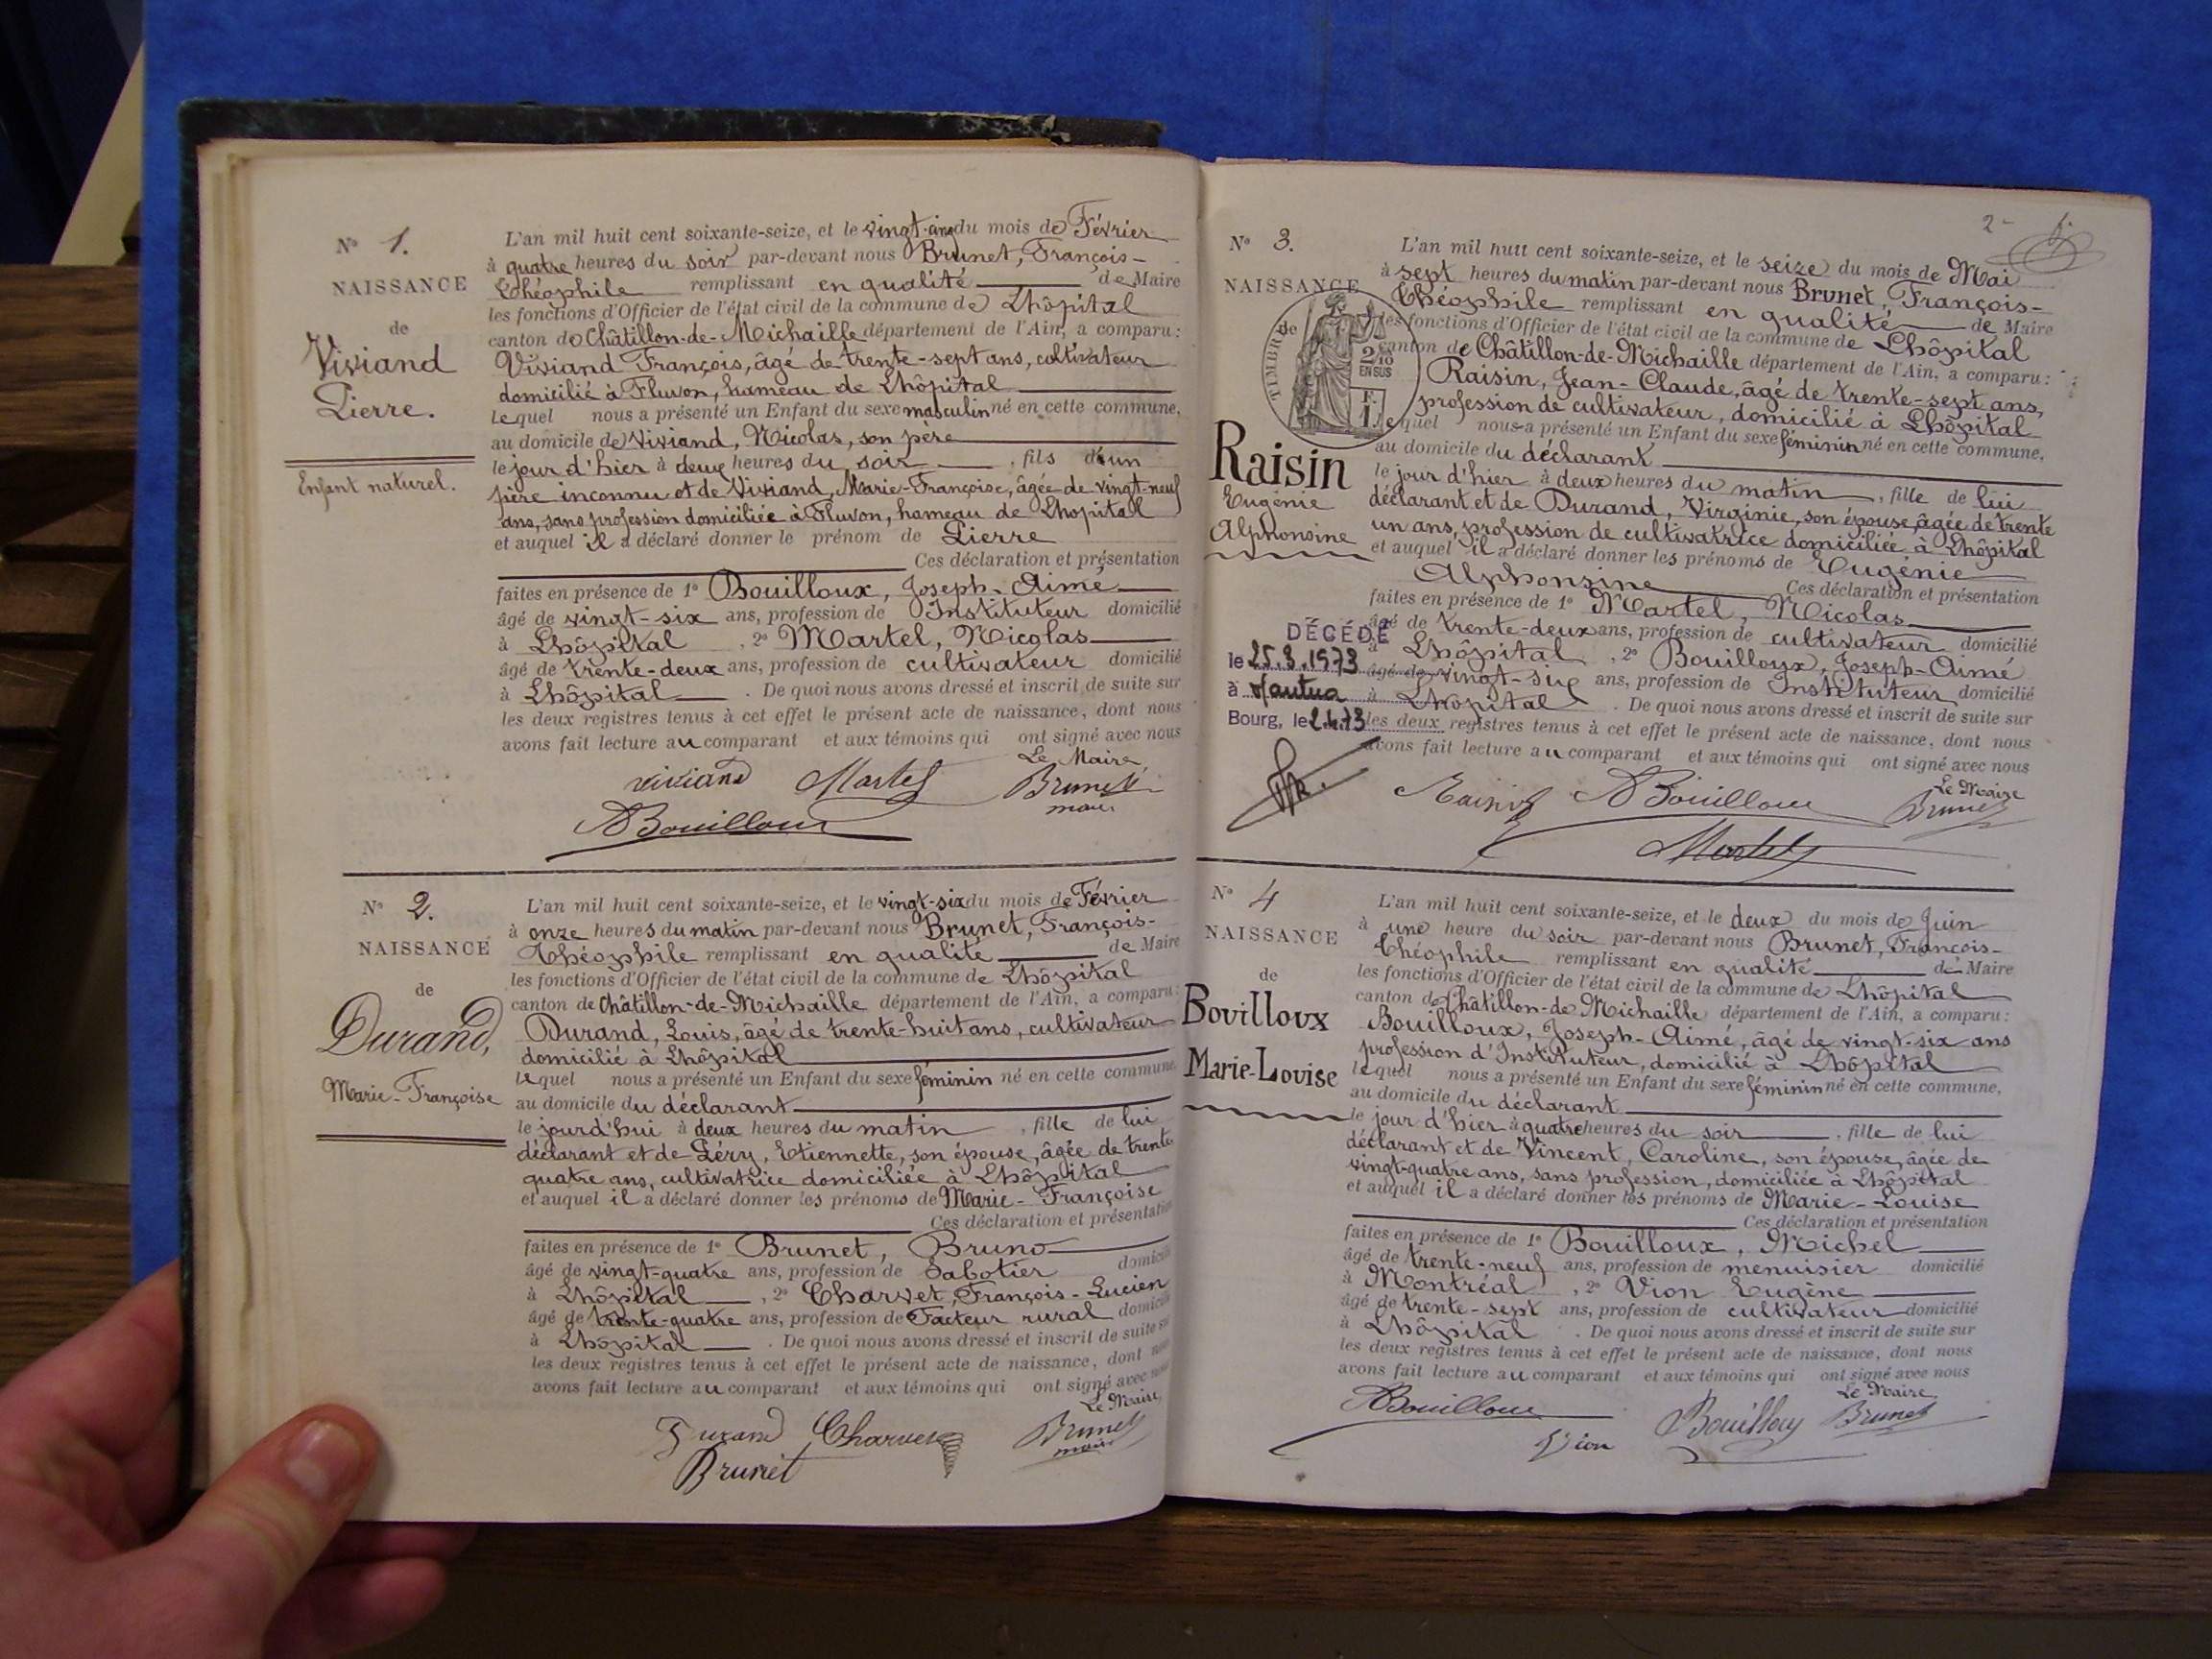 N° 1.
NAISSANCE
de
Viviand
Pierre.
Enfant naturel.
L'an mil huit cent soixante-seize, et le vingt-cinq du mois de Février
à quatre heures du soir par-devant nous Brunet, François-
Théophile remplissant en qualité de Maire
les fonctions d'Officier de l'état civil de la commune de Lhôpital
canton de Châtillon-de-Michaille département de l'Ain, a comparu:
Viviand François, âgé de trente-sept ans, cultivateur
domicilié à Fluvon, hameau de Lhôpital
lequel nous a présenté un Enfant du sexe masculin né en cette commune,
au domicile de Viviand, Nicolas, son père
le jour d'hier à deux heures du soir, fils d'un
père inconnu et de Viviand, Marie-Françoise, âgée de vingt-neuf
ans, sans profession domiciliée à Fluvon, hameau de Lhopital
et auquel il a déclaré donner le prénom de Pierre
Ces déclaration et présentation
faites en présence de 1° Bouilloux, Joseph-Aimé
âgé de vingt-six ans, profession de Instituteur domicilié
à Lhôpital, 2° Martel, Nicolas
âgé de trente-deux ans, profession de cultivateur domicilié
à Lhôpital. De quoi nous avons dressé et inscrit de suite sur
les deux registres tenus à cet effet le présent acte de naissance, dont nous
avons fait lecture au comparant et aux témoins qui ont signé avec nous
Le Maire,
viviand Martel Brunet
maire
ABouilloux
N° 2.
NAISSANCE
de
Durand,
Marie-Françoise
L'an mil huit cent soixante-seize, et le vingt-six du mois de Février
à onze heures du matin par-devant nous Brunet, François-
Théophile remplissant en qualité de Maire
les fonctions d'Officier de l'état civil de la commune de Lhôpital
canton de Châtillon-de-Michaille département de l'Ain, a comparu:
Durand, Louis, âgé de trente-huit ans, cultivateur
domicilié à Lhôpital
lequel nous a présenté un Enfant du sexe féminin né en cette commune,
au domicile du déclarant
le jourd'hui à deux heures du matin, fille de lui
déclarant et de Péry, Etiennette, son épouse, âgée de trente
quatre ans, cultivatrice domiciliée à Lhôpital
et auquel il a déclaré donner les prénoms de Marie-Françoise
Ces déclaration et présentation
faites en présence de 1° Brunet, Bruno
âgé de vingt-quatre ans, profession de Sabotier domicilié
à Lhôpital, 2° Charvet, François-Lucien
âgé de trente-quatre ans, profession de Facteur rural domicilié
à Lhôpital. De quoi nous avons dressé et inscrit de suite sur
les deux registres tenus à cet effet le présent acte de naissance, dont nous
avons fait lecture au comparant et aux témoins qui ont signé avec nous
Le Maire,
Durand Charvet Brunet
maire
Brunet
2-
N° 3.
NAISSANCE
de
TIMBRE
2/10
EN SUS
F.
1.
Raisin
Eugénie
Alphonsine
DÉCÉDÉ
le 25.3.1973
à Nantua
Bourg, le 2.4.73
L'an mil huit cent soixante-seize, et le seize du mois de Mai
à sept heures du matin par-devant nous Brunet, François-
Théophile remplissant en qualité de Maire
les fonctions d'Officier de l'état civil de la commune de Lhôpital
canton de Châtillon-de-Michaille département de l'Ain, a comparu:
Raisin, Jean-Claude, âgé de trente-sept ans,
profession de cultivateur, domicilié à Lhôpital
lequel nous a présenté un Enfant du sexe féminin né en cette commune,
au domicile du déclarant
le jour d'hier à deux heures du matin, fille de lui
déclarant et de Durand, Virginie, son épouse, âgée de trente
un ans, profession de cultivatrice domiciliée à Lhôpital
et auquel il a déclaré donner les prénoms de Eugénie
Alphonsine Ces déclaration et présentation
faites en présence de 1° Martel, Nicolas
âgé de trente-deux ans, profession de cultivateur domicilié
à Lhôpital, 2° Bouilloux, Joseph-Aimé
âgé de vingt-six ans, profession de Instituteur domicilié
à Lhôpital. De quoi nous avons dressé et inscrit de suite sur
les deux registres tenus à cet effet le présent acte de naissance, dont nous
avons fait lecture au comparant et aux témoins qui ont signé avec nous
Le Maire
Raisin ABouilloux Brunet
Martel
N° 4
NAISSANCE
de
Bouilloux
Marie-Louise
L'an mil huit cent soixante-seize, et le deux du mois de Juin
à une heure du soir par-devant nous Brunet, François-
Théophile remplissant en qualité de Maire
les fonctions d'Officier de l'état civil de la commune de Lhôpital
canton de Châtillon-de-Michaille département de l'Ain, a comparu:
Bouilloux, Joseph-Aimé, âgé de vingt-six ans
profession d'Instituteur, domicilié à Lhôpital
lequel nous a présenté un Enfant du sexe féminin né en cette commune,
au domicile du déclarant
le jour d'hier à quatre heures du soir, fille de lui
déclarant et de Vincent, Caroline, son épouse, âgée de
vingt-quatre ans, sans profession, domiciliée à Lhôpital
et auquel il a déclaré donner les prénoms de Marie-Louise
Ces déclaration et présentation
faites en présence de 1° Bouilloux, Michel
âgé de trente-neuf ans, profession de menuisier domicilié
à Montréal, 2° Vion Eugène
âgé de trente-sept ans, profession de cultivateur domicilié
à Lhôpital. De quoi nous avons dressé et inscrit de suite sur
les deux registres tenus à cet effet le présent acte de naissance, dont nous
avons fait lecture au comparant et aux témoins qui ont signé avec nous
Le Maire,
ABouilloux Vion Bouilloux Brunet